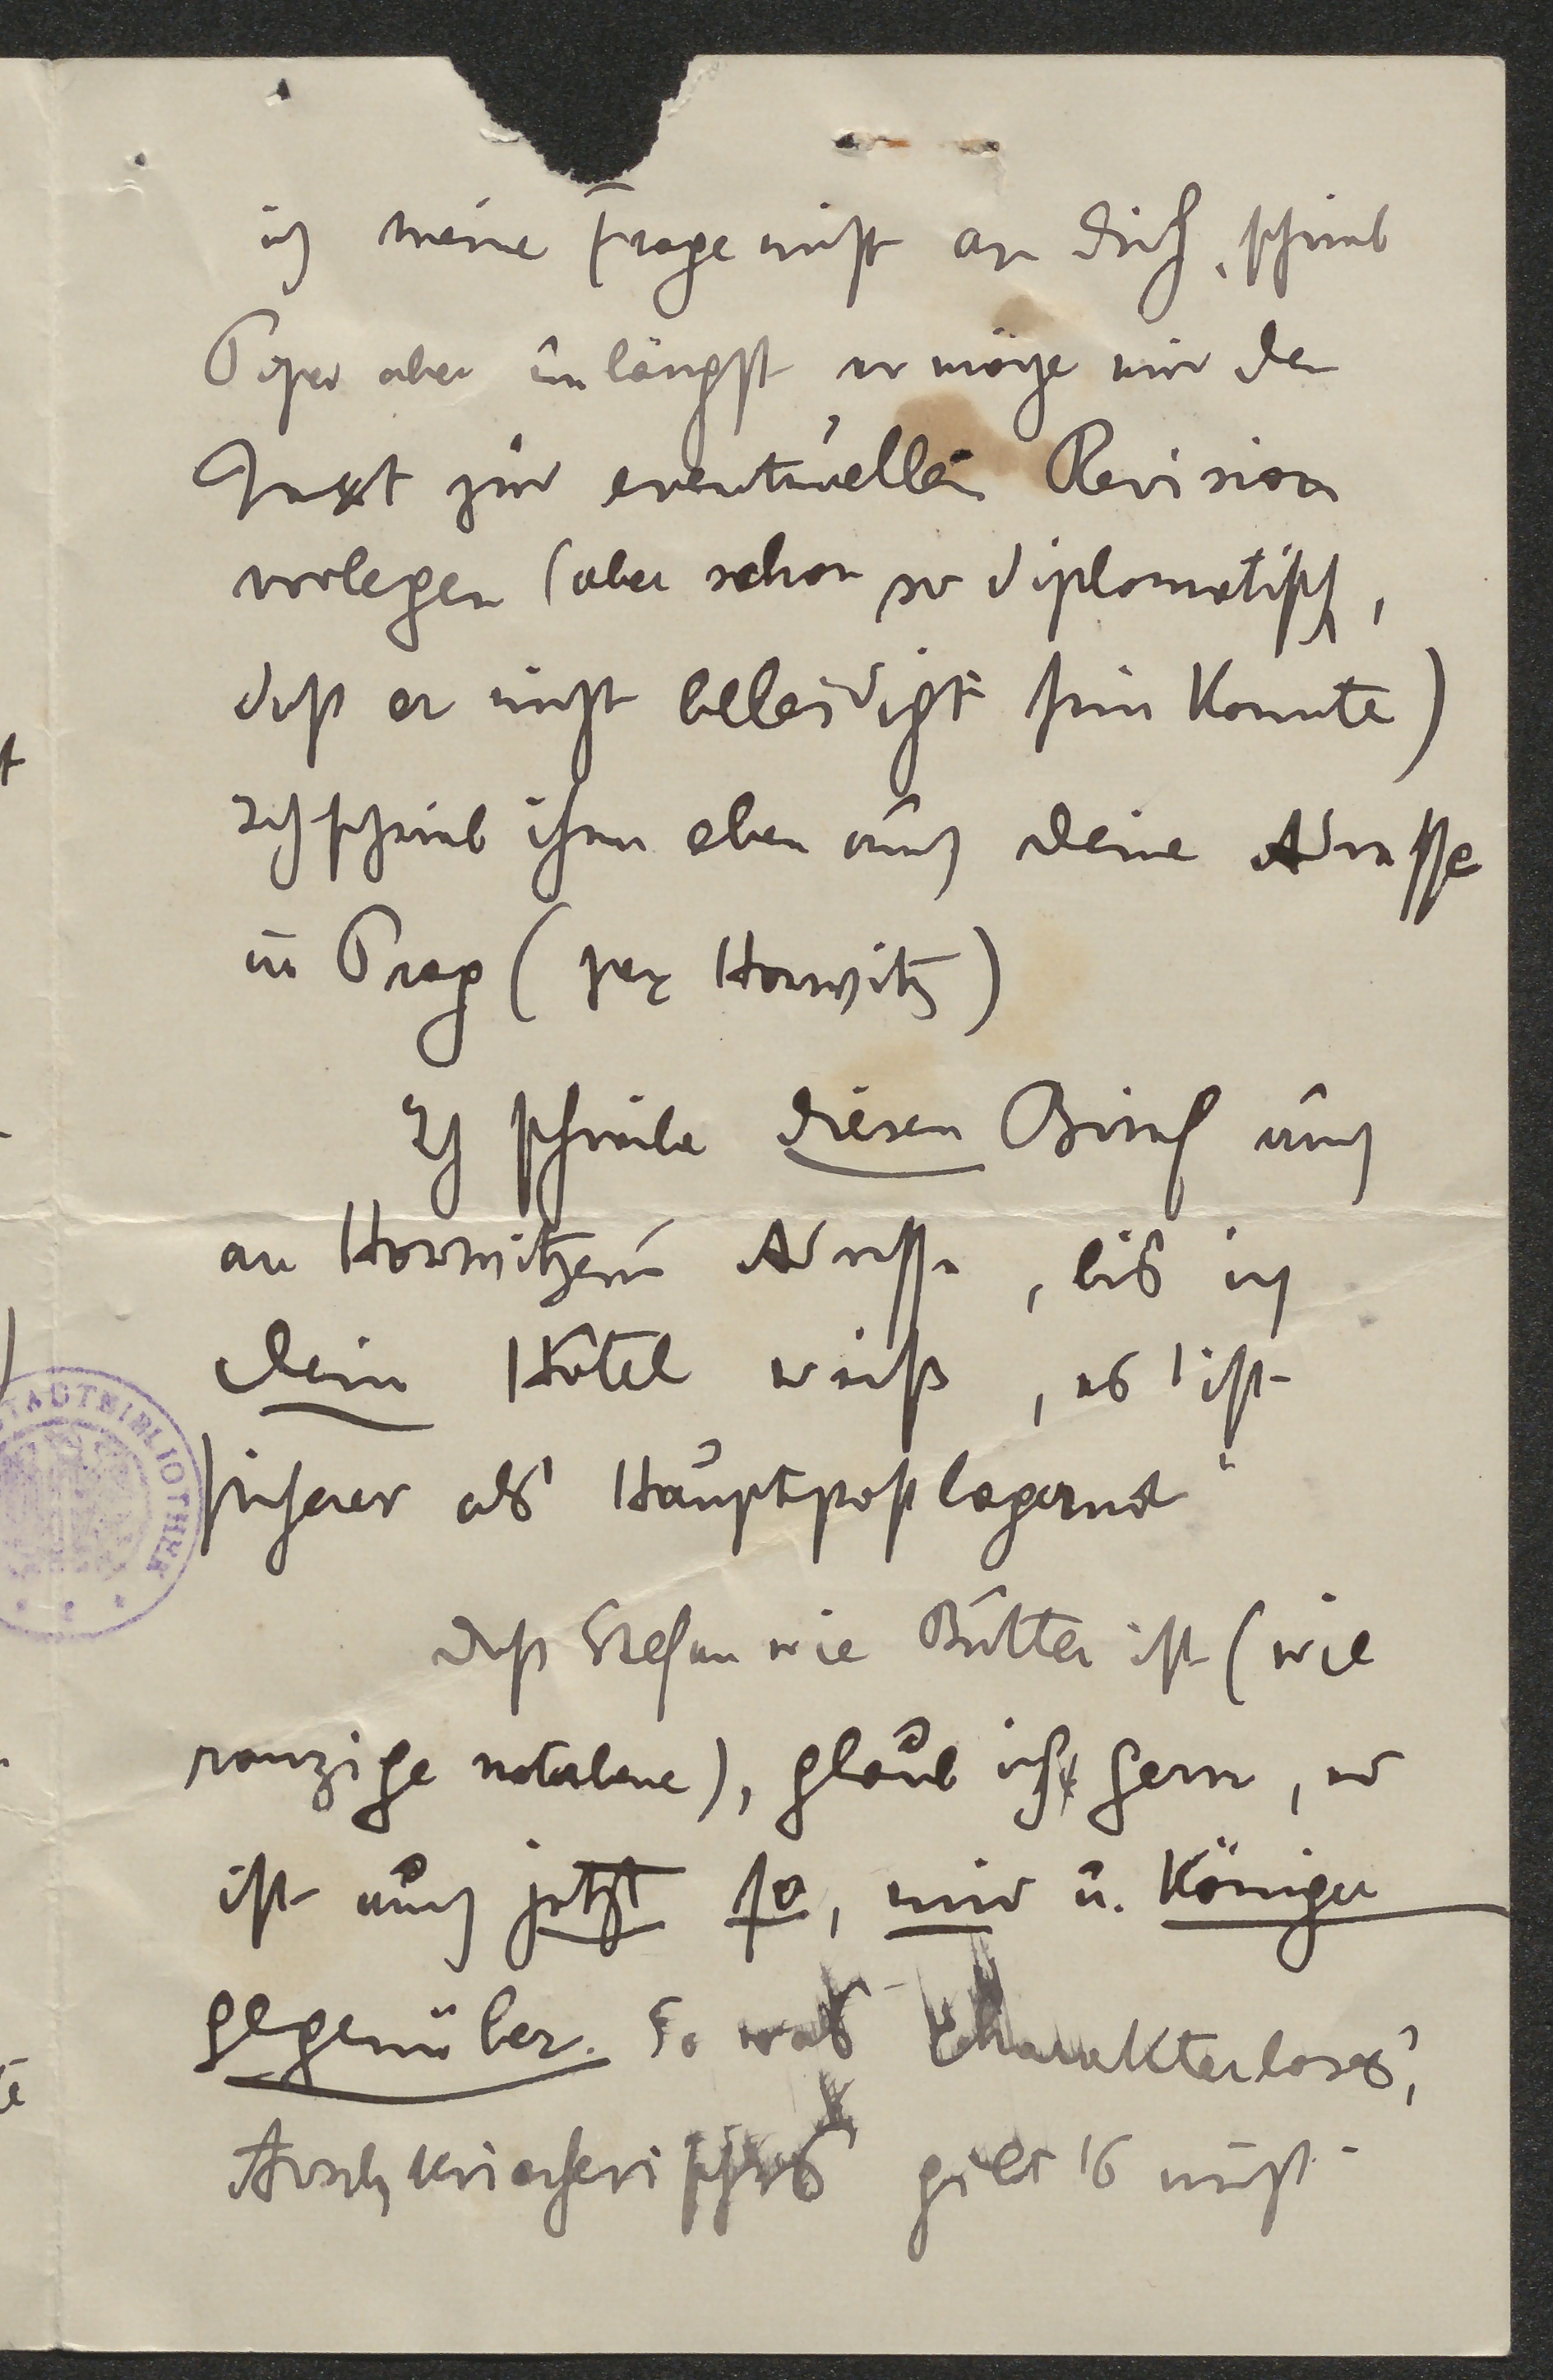 ich meine Frage nicht an dich, schrieb
Piper aber unlängst er möge mir den
Text zur eventuellen Revision
vorlegen (aber schon so diplomatisch,
daß er nicht beleidigt sein konnte)
Ich schrieb ihm eben auch deine Adresse
in Prag (per Horwitz)
Ich schreibe diesen Brief auch
an Horwitzens Adresse, bis ich
dein Hôtel weiß, es ist
sicherer als Hauptpostlagernd"
daß Stefan wie Butter ist (wie
ranzige notabene), glaub ich gern, er
ist auch jetzt so, mir u. Königer
gegenüber. So was Charakterloses,
Arschkriecherisches gibt's nicht
STADTBIBLIOTHEK